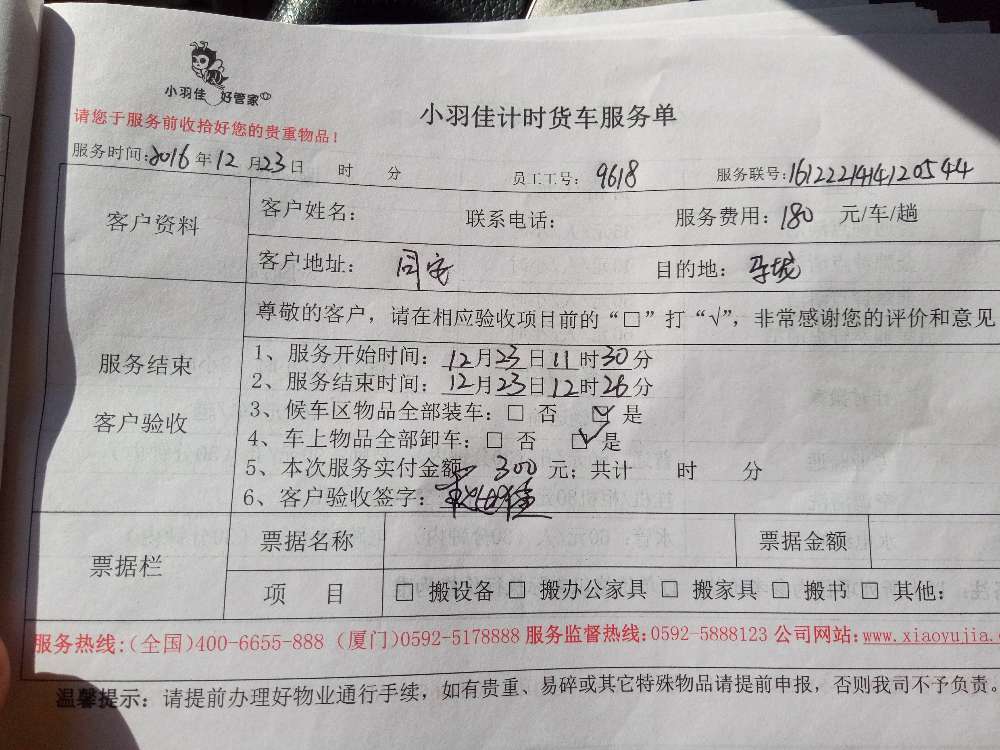 小羽佳 好管家
请您于服务前收拾好您的贵重物品!
小羽佳计时货车服务单
服务时间:2016年12月23日 时 分 员工工号: 9618 服务联号:1612221414120544
客户资料
客户姓名: 联系电话: 服务费用: 180 元/车/趟
客户地址: 同安 目的地: 马垅
服务结束
客户验收
尊敬的客户，请在相应验收项目前的“□”打“√”，非常感谢您的评价和意见
1、服务开始时间: 12月23日11时30分
2、服务结束时间: 12月23日12时26分
3、候车区物品全部装车: □ 否 ☑ 是
4、车上物品全部卸车: □ 否 ☑ 是
5、本次服务实付金额 300 元; 共计 时 分
6、客户验收签字:
票据栏
票据名称 票据金额
项 目 □ 搬设备 □ 搬办公家具 □ 搬家具 □ 搬书 □ 其他:
服务热线:(全国)400-6655-888 (厦门)0592-5178888 服务监督热线:0592-5888123 公司网站:www.xiaoyujia.
温馨提示: 请提前办理好物业通行手续，如有贵重、易碎或其它特殊物品请提前申报，否则我司不予负责。